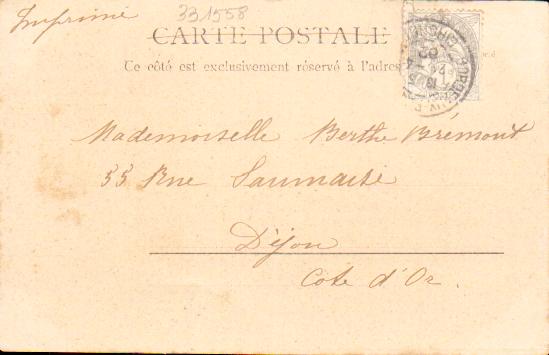 Imprimé
331558
CARTE POSTALE
Ce côté est exclusivement réservé à l'adresse
Mademoiselle Berthe Brémont
55 Rue Saumaise
Dijon
Côte d'Or.